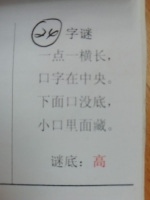 24 字谜
一点一横长，
口字在中央。
下面口没底，
小口里面藏。
谜底：高